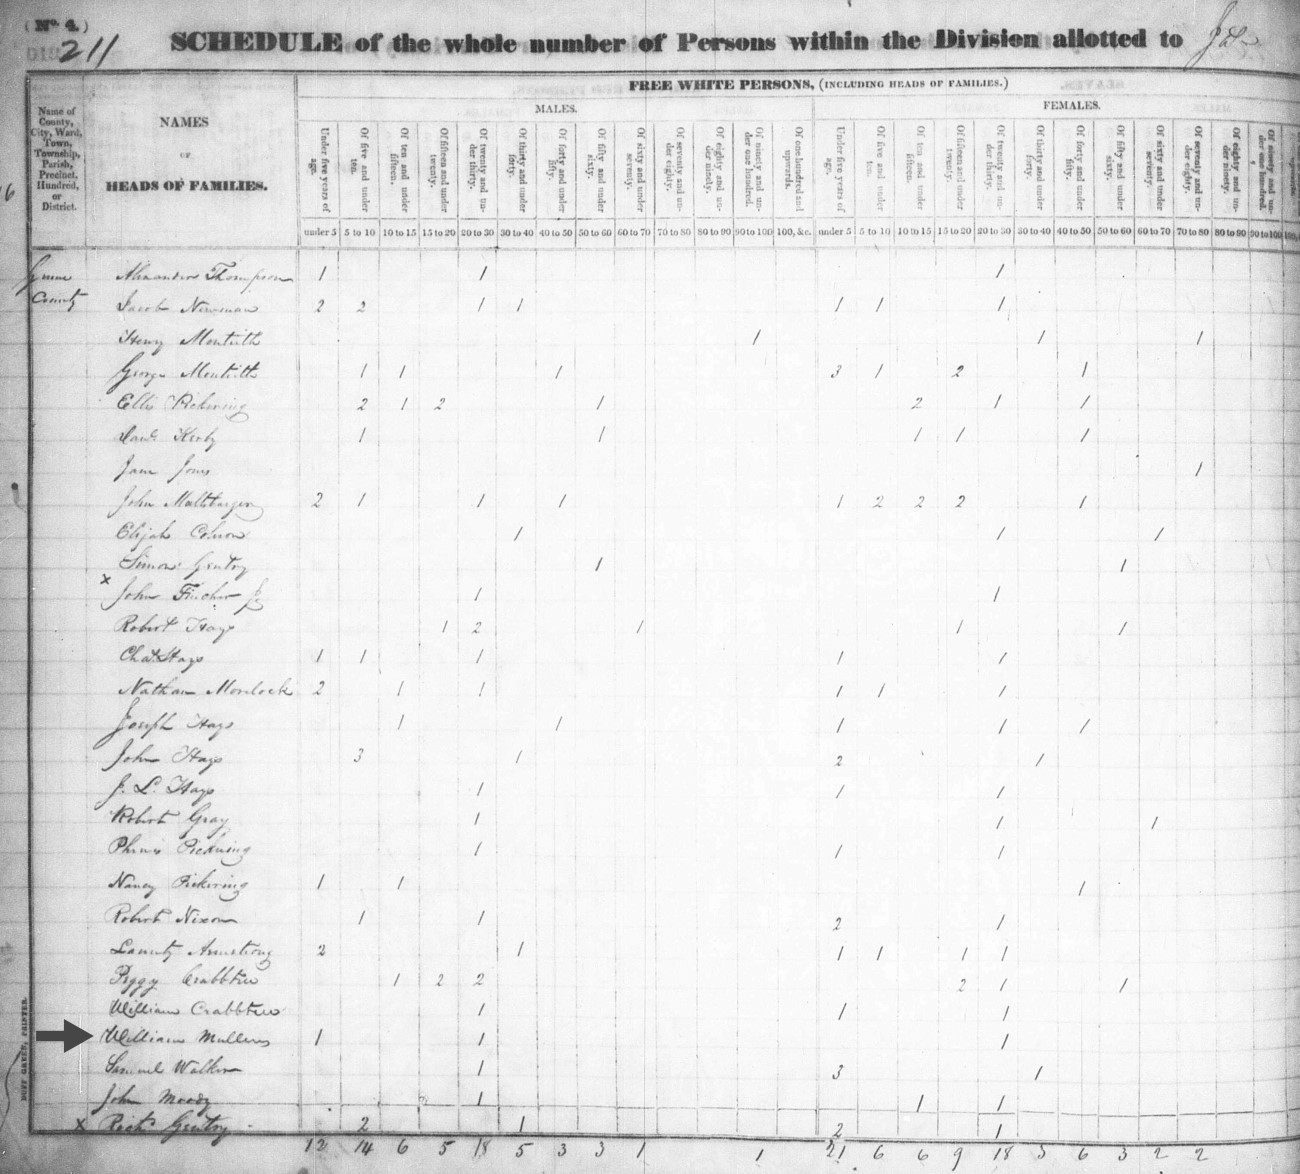 (No. 4.)
211
SCHEDULE of the whole number of Persons within the Division allotted to
FREE WHITE PERSONS, (INCLUDING HEADS OF FAMILIES.)
MALES. FEMALES.
Name of County, City, Ward, Town, Township, Parish, Precinct, Hundred, or District.
NAMES
OF
HEADS OF FAMILIES.
Under five years of age. Of five and under ten. Of ten and under fifteen. Of fifteen and under twenty. Of twenty and under thirty. Of thirty and under forty. Of forty and under fifty. Of fifty and under sixty. Of sixty and under seventy. Of seventy and under eighty. Of eighty and under ninety. Of ninety and under one hundred. Of one hundred and upwards. Under five years of age. Of five and under ten. Of ten and under fifteen. Of fifteen and under twenty. Of twenty and under thirty. Of thirty and under forty. Of forty and under fifty. Of fifty and under sixty. Of sixty and under seventy. Of seventy and under eighty. Of eighty and under ninety. Of ninety and under one hundred.
under 5 5 to 10 10 to 15 15 to 20 20 to 30 30 to 40 40 to 50 50 to 60 60 to 70 70 to 80 80 to 90 90 to 100 100, &c. under 5 5 to 10 10 to 15 15 to 20 20 to 30 30 to 40 40 to 50 50 to 60 60 to 70 70 to 80 80 to 90 90 to 100
Greene Alexander Thompson 1 1 1
County Jacob Newman 2 2 1 1 1 1 1
Henry Monteith 1 1 1
George Monteith 1 1 1 3 1 2 1
Ellis Pickering 2 1 2 1 2 1 1
Kerby 1 1 1 1 1
Jane Jones 1
John Maltsbarger 2 1 1 1 1 2 2 2 1
Elijah 1 1 1
Simon Gentry 1 1
x John Fincher Jr 1 1
Robert Hays 1 2 1 1 1
Chas Hays 1 1 1 1 1
Nathan Morelock 2 1 1 1 1 1
Joseph Hays 1 1 1 1 1
John Hays 3 1 2 1
J. L. Hays 1 1 1
Robert Gray 1 1 1
Pickering 1 1 1
Nancy Pickering 1 1 1
Robert Nixon 1 1 2 1
Armstrong 2 1 1 1 1 1
Peggy Crabbtree 1 2 2 2 1 1
William Crabbtree 1 1 1
William Mullens 1 1 1
Samuel Walker 1 3 1
John Moody 1 1 1
x Richd Gentry 2 1 2 1
12 14 6 5 18 5 3 3 1 1 21 6 6 9 18 5 6 3 2 2
DUFF GREEN, PRINTER.